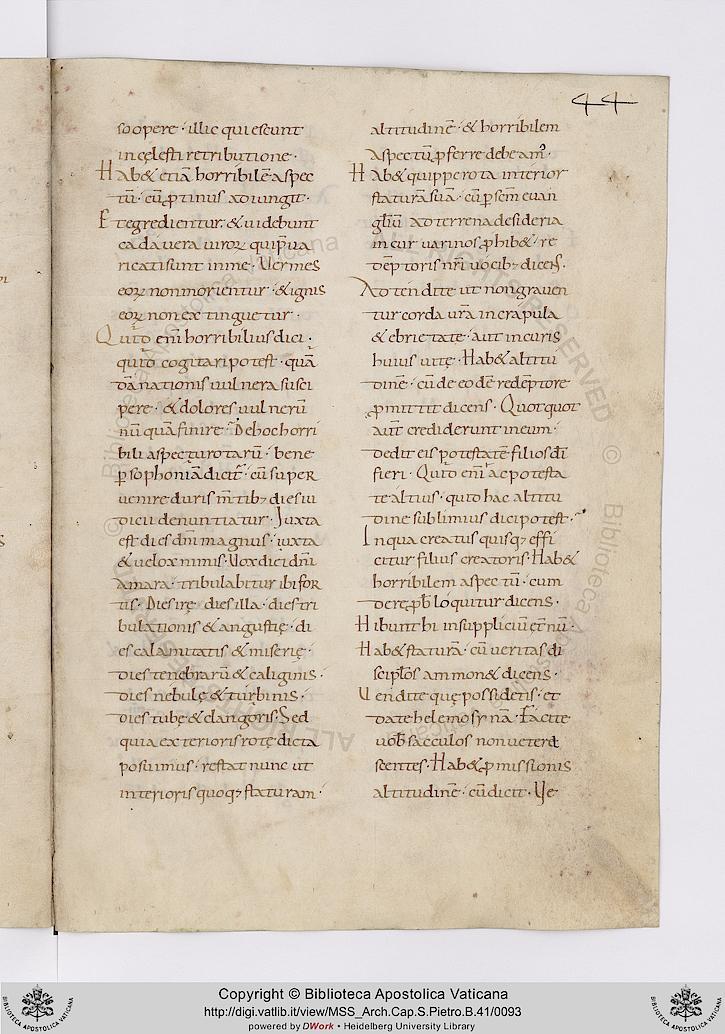 44
so opere · illic quiescunt
in cęlesti retributione ·
Hab& etiā horribilē aspec
tū · cū ꝓtinus adiungit ·
Et egredientur · & uidebunt
cadauera uiroꝝ qui p̄ua
ricati sunt in me · Uermes
eoꝝ non morientur · & ignis
eoꝝ non extinguetur ·
Quid enī horribilius dici ·
quid cogitari potest · quā
dānationis uulnera susci
pere · & dolores uulnerū
nū quā finire · De hoc horri
bili aspectu rotarū · bene
ꝑ sophoniā dicit · cū super
uenire duris m̄tib; dies iu
dicii denuntiatur · Juxta
est dies dn̄i magnus · iuxta
& uelox nimis · Uox diei dn̄i
amara · tribulabitur ibi for
tis · Dies irę · dies illa · dies tri
bulationis & angustię · di
es calamitatis & miserię ·
dies tenebrarū & caliginis ·
dies nebulę & turbinis ·
dies tubę & clangoris · Sed
quia exterioris rotę dicta
posuimus · restat nunc ut
interioris quoq; staturam ·
altitudinē · & horribilem
aspectū ꝓferre debeam' ·
Hab& quippe rota interior
staturā suā · cū ꝑ sc̄m euan
gl̄iū ad terrena desideria
redēptoris nr̄i uocib; dicens ·
Adtendite ut non grauen
tur corda ur̄a in crapula
& ebrietate · aut in curis
huius uitę · Hab& altitu
dinē · cū de eodē redēptore
ꝓmittit dicens · Quotquot
aut̄ crediderunt in eum ·
dedit eis potestatē filios dī
fieri · Quid enī hac potesta
te altius · quid hac altitu
dine sublimius dici potest ·
In qua creatus quisq; effi
citur filius creatoris · Hab&
horribilem aspectū · cum
loquitur dicens ·
Hi ibunt hi in suppliciū
Hab& staturā · cū ueritas di
scip̄los ammon& dicens ·
Uendite quę possidetis · et
date helemosynā · Facite
uob̄ sacculos non ueteres
centes · Hab& ꝓmissionis
altitudinē · cū dicit · Ue
Copyright © Biblioteca Apostolica Vaticana
http://digi.vatlib.it/view/MSS_Arch.Cap.S.Pietro.B.41/0093
powered by DWork • Heidelberg University Library